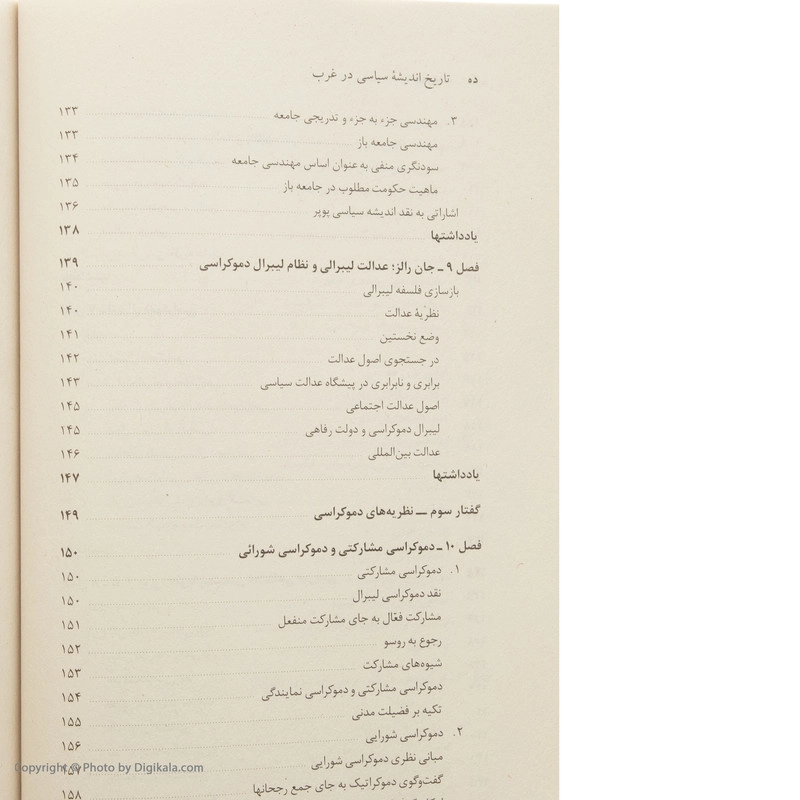 ده تاریخ اندیشهٔ سیاسی در غرب
۳. مهندسی جزء به جزء و تدریجی جامعه ۱۳۳
مهندسی جامعه باز ۱۳۳
سودنگری منفی به عنوان اساس مهندسی جامعه ۱۳۴
ماهیت حکومت مطلوب در جامعه باز ۱۳۵
اشاراتی به نقد اندیشه سیاسی پوپر ۱۳۶
یادداشتها ۱۳۸
فصل ۹ ـ جان رالز؛ عدالت لیبرالی و نظام لیبرال دموکراسی ۱۳۹
بازسازی فلسفه لیبرالی ۱۴۰
نظریهٔ عدالت ۱۴۰
وضع نخستین ۱۴۱
در جستجوی اصول عدالت ۱۴۲
برابری و نابرابری در پیشگاه عدالت سیاسی ۱۴۳
اصول عدالت اجتماعی ۱۴۵
لیبرال دموکراسی و دولت رفاهی ۱۴۵
عدالت بین‌المللی ۱۴۶
یادداشتها ۱۴۷
گفتار سوم ـــ نظریه‌های دموکراسی ۱۴۹
فصل ۱۰ ـ دموکراسی مشارکتی و دموکراسی شورائی ۱۵۰
۱. دموکراسی مشارکتی ۱۵۰
نقد دموکراسی لیبرال ۱۵۰
مشارکت فعّال به جای مشارکت منفعل ۱۵۱
رجوع به روسو ۱۵۲
شیوه‌های مشارکت ۱۵۳
دموکراسی مشارکتی و دموکراسی نمایندگی ۱۵۴
تکیه بر فضیلت مدنی ۱۵۵
۲. دموکراسی شورایی ۱۵۶
مبانی نظری دموکراسی شورایی ۱۵۷
گفت‌وگوی دموکراتیک به جای جمع رجحانها ۱۵۸
Copyright © Photo by Digikala.com